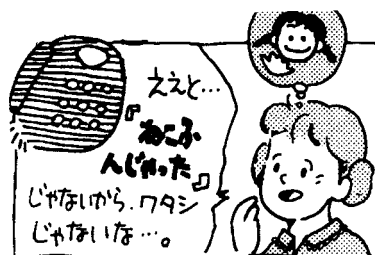 ええと…
『ねこふ
んじゃった』
じゃないから、ワタシ
じゃないな…。